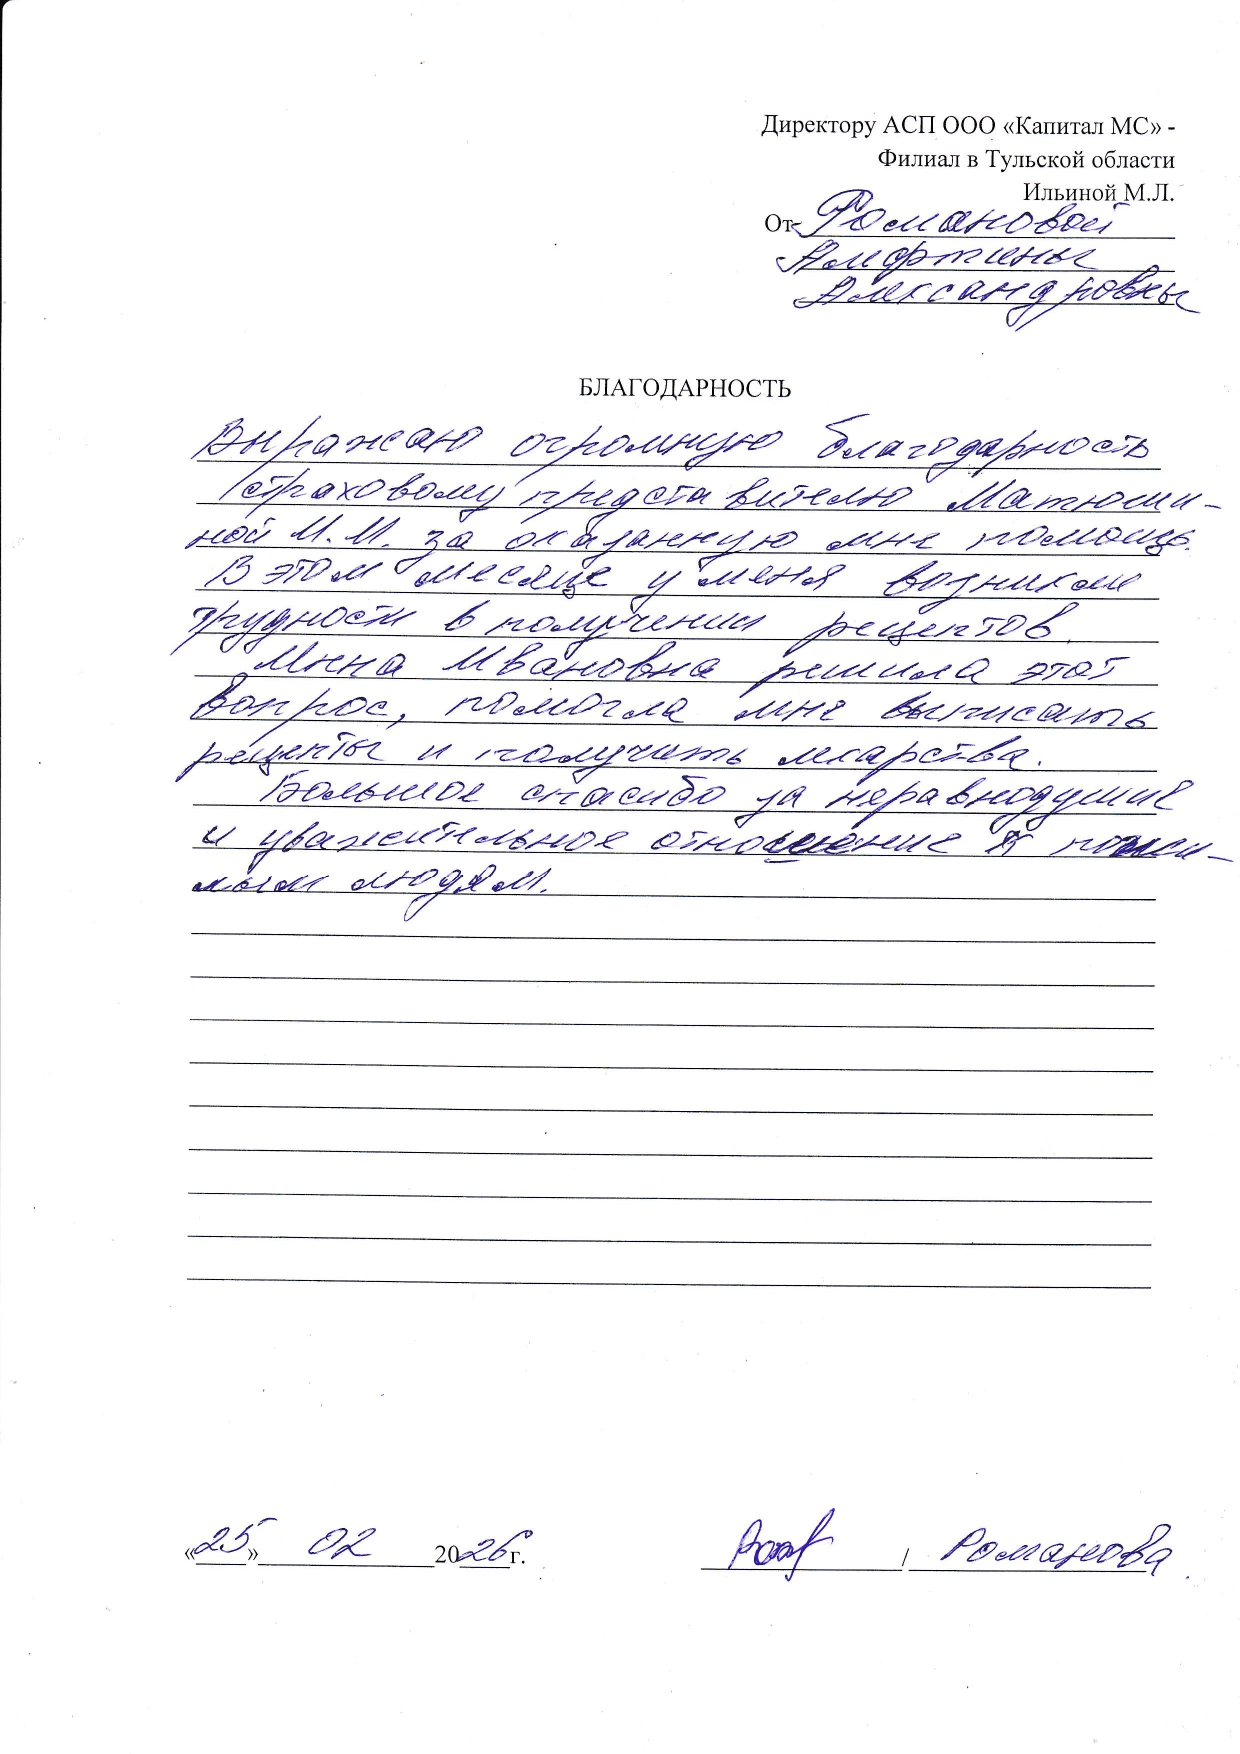 Директору АСП ООО «Капитал МС» -
Филиал в Тульской области
Ильиной М.Л.
От Романовой
Александровны
БЛАГОДАРНОСТЬ
Выражаю огромную благодарность
страховому представителю Матюши-
ной И.И. за оказанную мне помощь.
В этом месяце у меня возникли
трудности в получении рецептов.
Инна Ивановна решила этот
вопрос, помогла мне выписать
рецепты и получить лекарства.
Большое спасибо за неравнодушие
и уважительное отношение к пожи-
лым людям.
«25» 02 2026г. / Романова